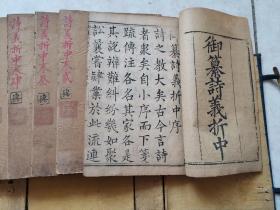 御纂詩義折中
御纂詩義折中序
詩之教大矣古今言詩
者衆矣自小序而下箋
疏傳注各名其家各是
其說辨難糾紛幾如聚
訟曩嘗肄業於此流連
詩義折中
詩義折中
詩義折中